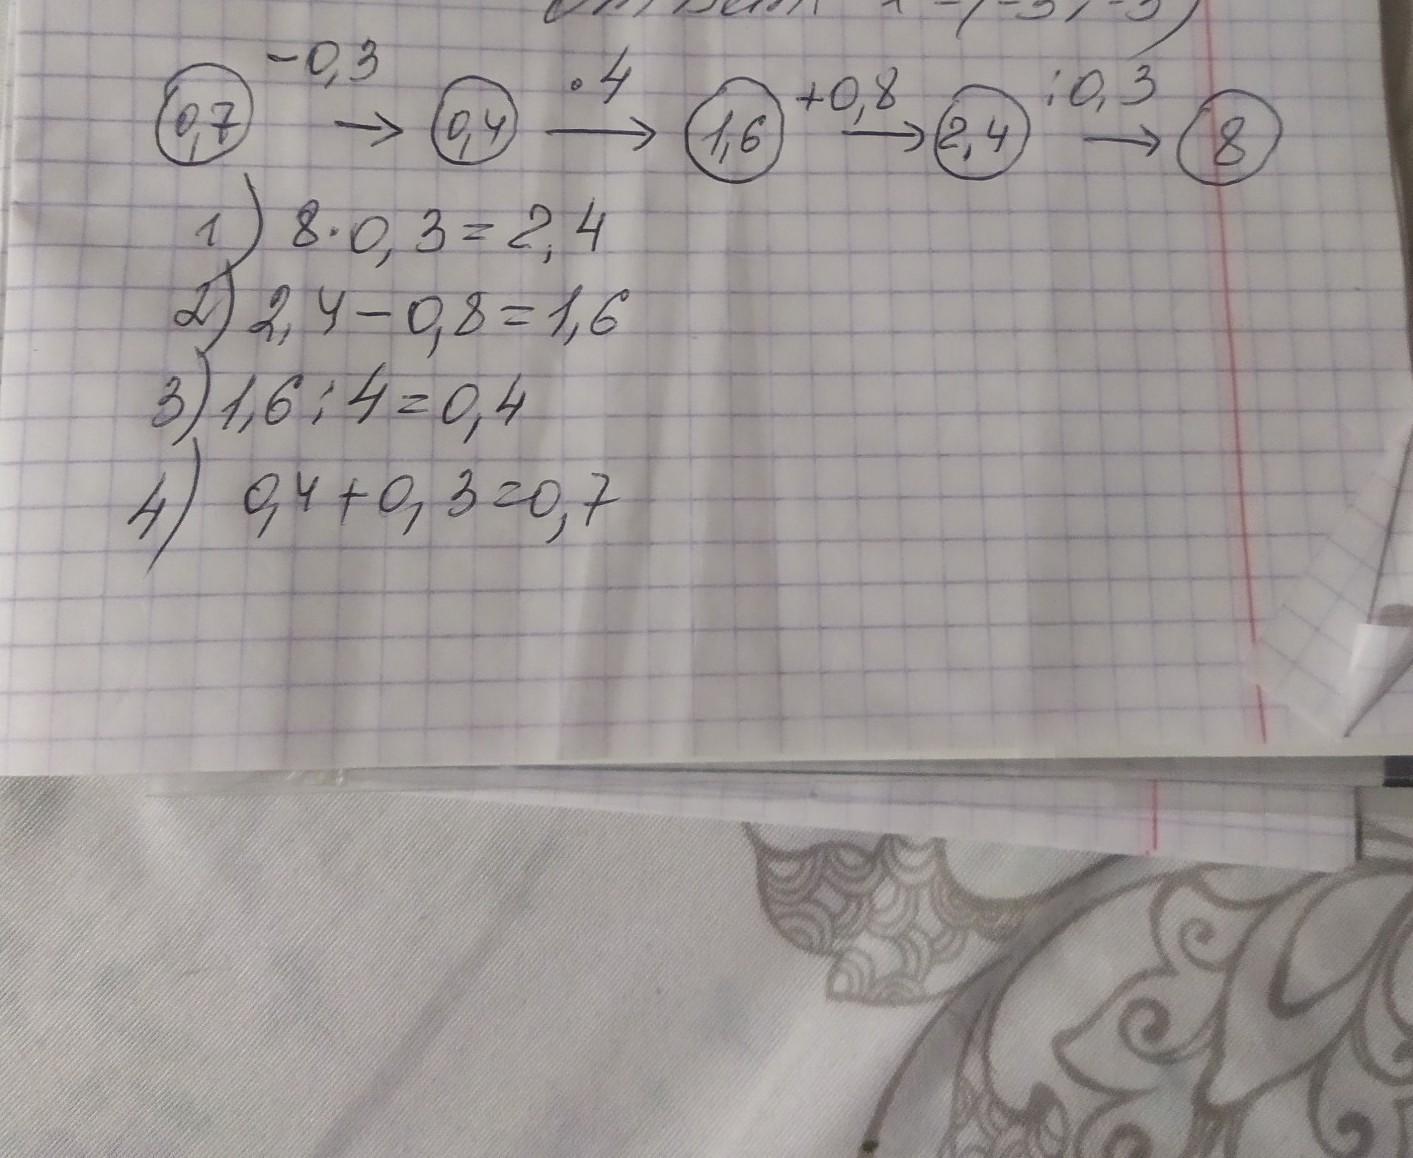 -0,3 · 4 +0,8 : 0,3
0,7 → 0,4 → 1,6 → 2,4 → 8
1) 8 · 0,3 = 2,4
2) 2,4 - 0,8 = 1,6
3) 1,6 : 4 = 0,4
4) 0,4 + 0,3 = 0,7